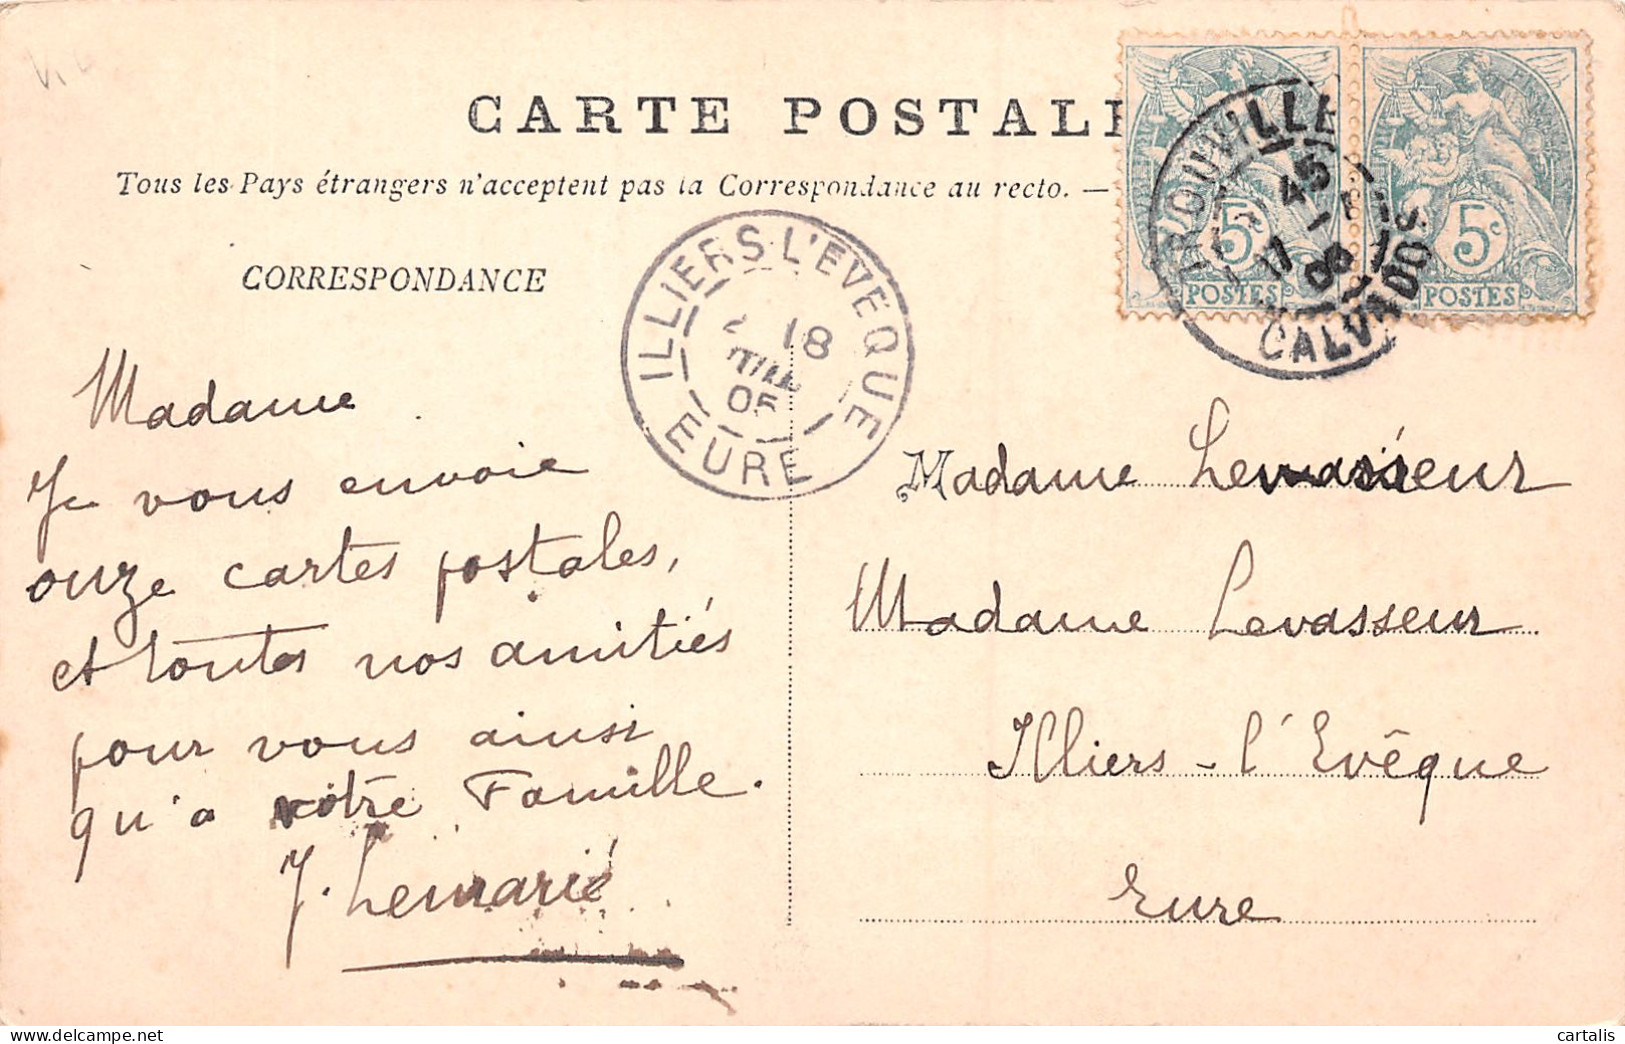 CARTE POSTALE
Tous les Pays étrangers n'acceptent pas la Correspondance au recto. —
CORRESPONDANCE
TROUVILLE
45
17
CALVADOS
5c
POSTES
5c
POSTES
ILLIERS L'EVEQUE
18
05
EURE
Madame
Je vous envoie
onze cartes postales,
et toutes nos amitiés
pour vous ainsi
qu'a votre Famille.
J. Lemarié
Madame
Madame Levasseur
Illiers-l'Evêque
Eure
cartalis